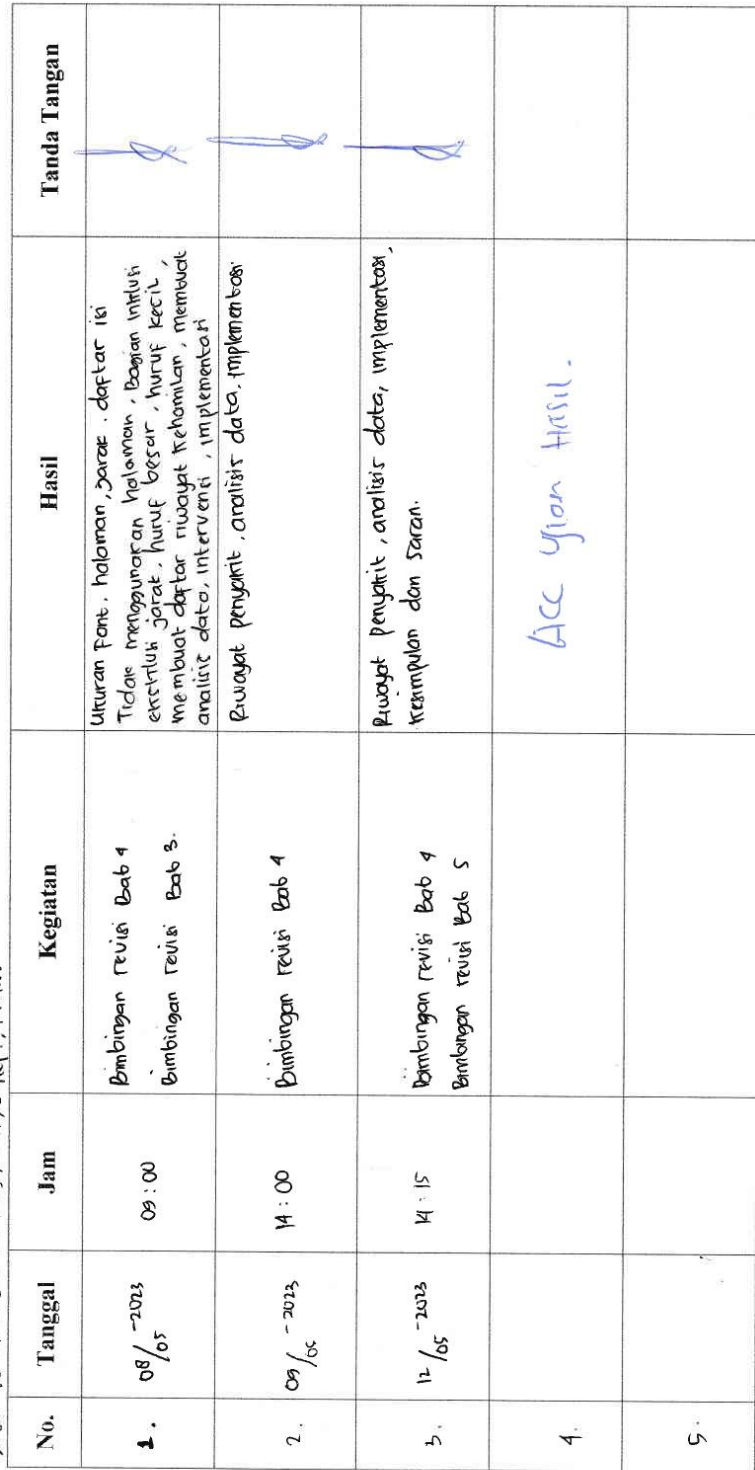 No. Tanggal Jam Kegiatan Hasil Tanda Tangan
1. 08/05-2023 09:00 Bimbingan revisi Bab 4
Bimbingan revisi Bab 3.
Ukuran Font, halaman, jarak, daftar isi
Tidak menggunakan halaman, Bagian inklusi
eksklusi jarak, huruf besar, huruf kecil,
membuat daftar riwayat kehamilan, membuat
analisis data, intervensi, implementasi
2. 09/05-2023 14:00 Bimbingan revisi Bab 4
Riwayat penyakit, analisis data, implementasi
3. 12/05-2023 14:15 Bimbingan revisi Bab 4
Bimbingan revisi Bab 5
Riwayat penyakit, analisis data, implementasi,
kesimpulan dan saran.
4. Acc Ujian Hasil.
5.